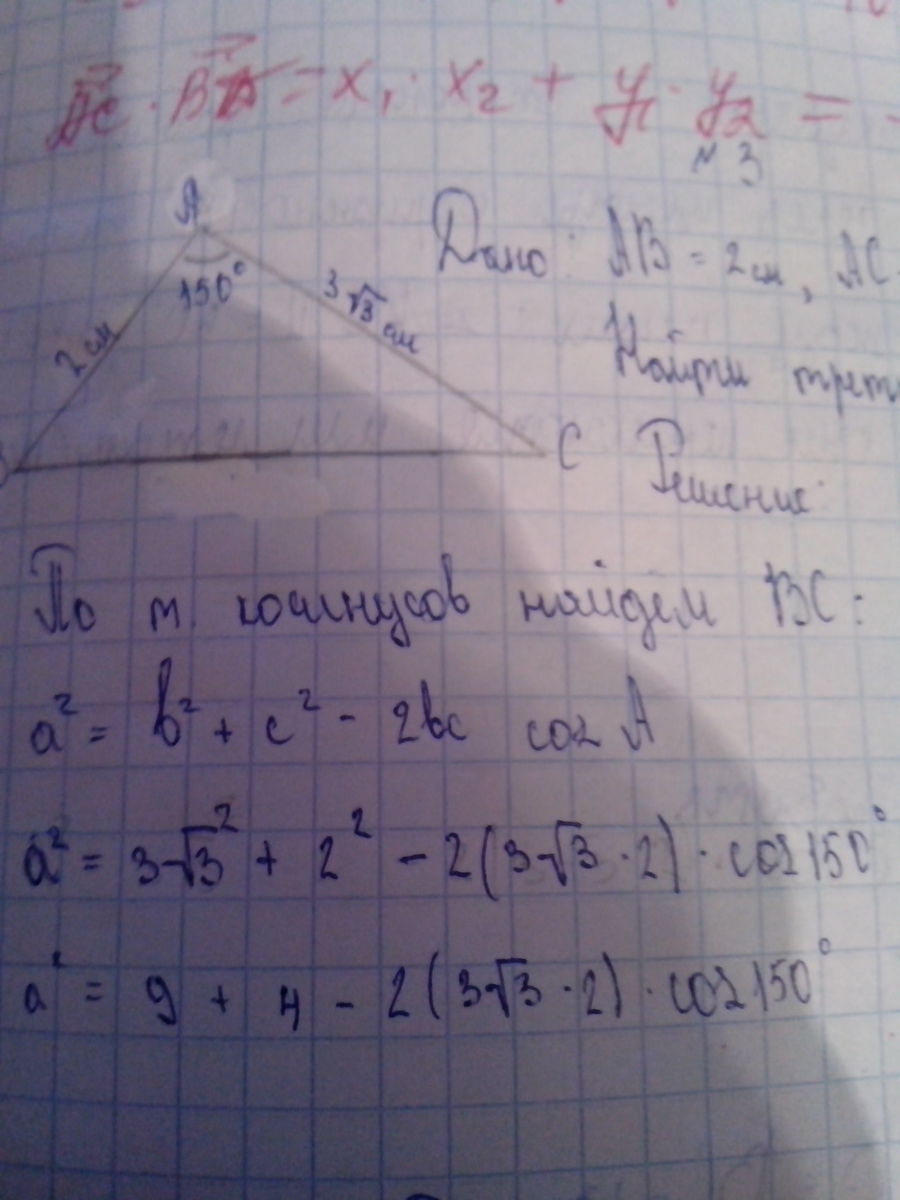 AC · BD = x₁ · x₂ + y₁ · y₂ =
№ 3
A
150°
2 см
3√3 см
C
Дано: AB = 2 см, AC
Найти
Решение:
По т. косинусов найдем BC:
a² = b² + c² - 2bc cos A
a² = 3√3² + 2² - 2(3√3 · 2) · cos 150°
a² = 9 + 4 - 2(3√3 · 2) · cos 150°